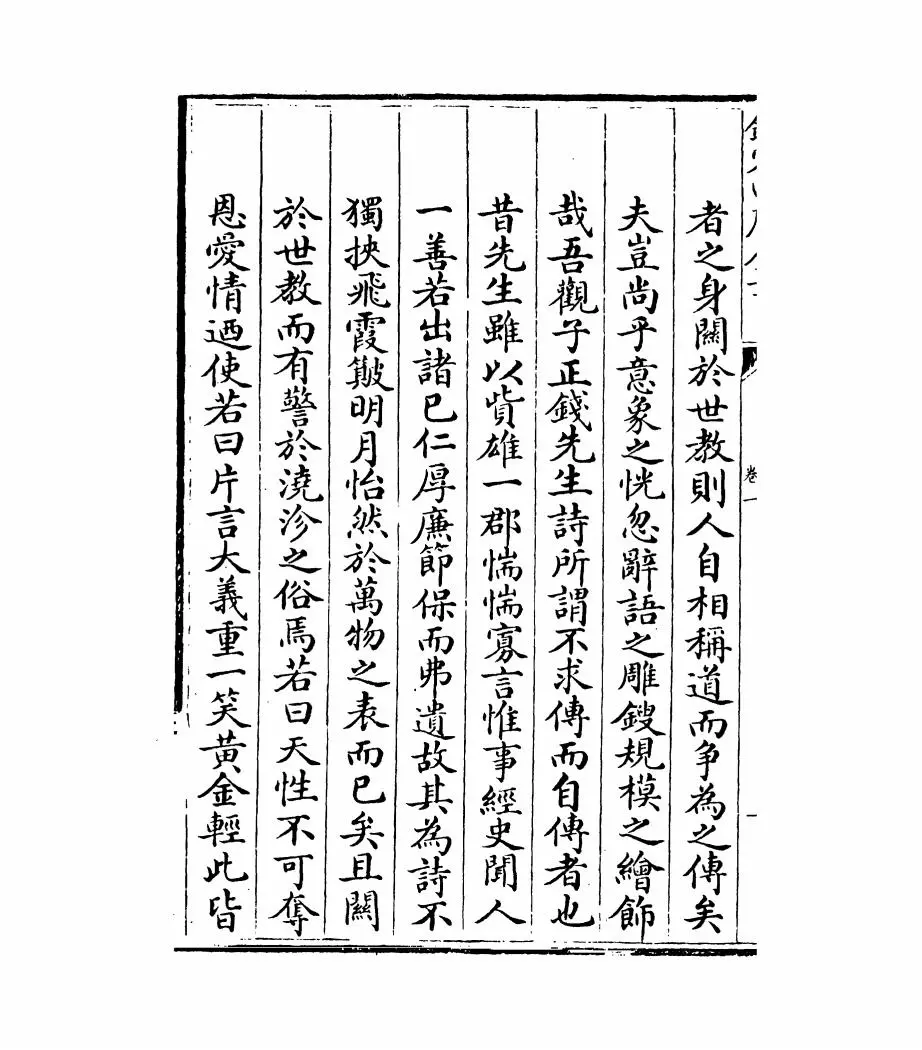 者之身關於世教則人自相稱道而争為之傳矣
夫豈尚乎意象之恍忽辭語之雕鎪規模之繪飾
哉吾觀子正錢先生詩所謂不求傳而自傳者也
昔先生雖以貲雄一郡惴惴寡言惟事經史聞人
一善若出諸已仁厚廉節保而弗遺故其為詩不
獨挾飛霞簸明月怡然於萬物之表而已矣且關
於世教而有警於澆沴之俗焉若曰天性不可奪
恩愛情迺使若曰片言大義重一笑黄金輕此皆
卷一